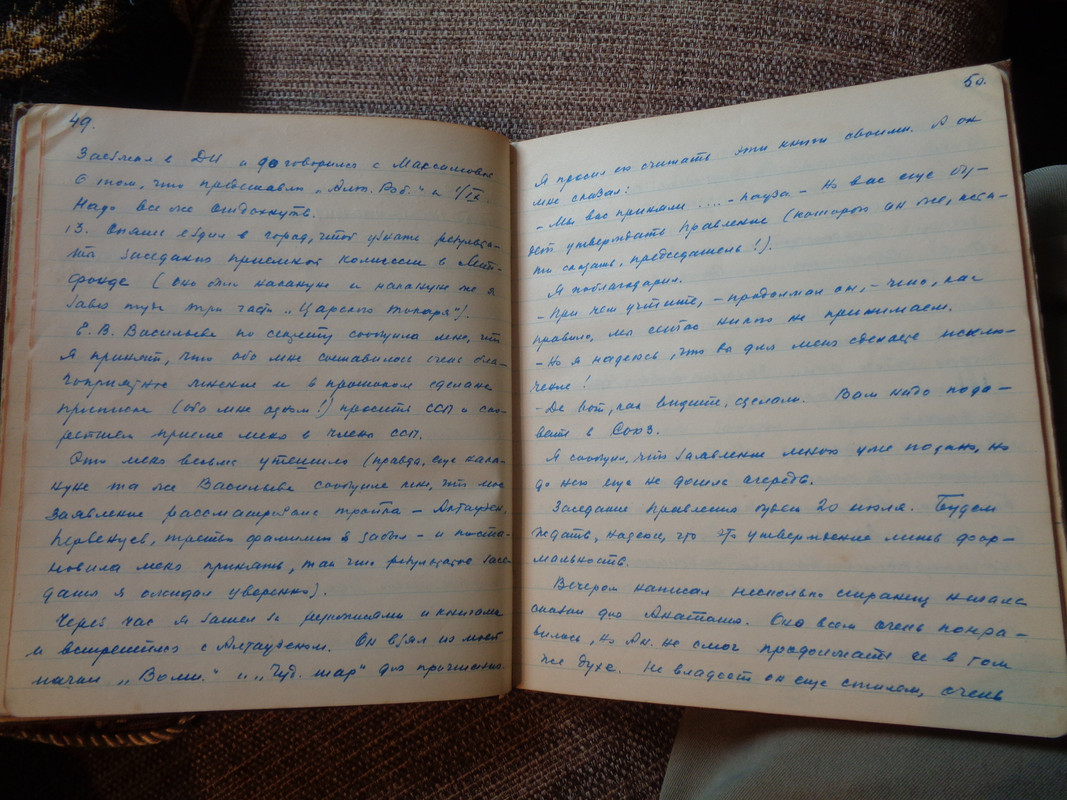 49.
Заезжал в ДИ и договорился с Максимовой
о том, что представлю „Алт. Роб." к 1/IX.
Надо все же отдохнуть.
13. Опять ездил в город, чтоб узнать результа-
ты заседания приемной комиссии в Лит-
фонде (оно было накануне и накануне же я
завез туда три части „Царского токаря").
Е. В. Васильева по секрету сообщила мне, что
я принят, что обо мне составилось очень бла-
гоприятное мнение и в протоколе сделана
приписка (обо мне одном!) просить ССП о
приеме меня в члены ССП.
Это меня весьма утешило (правда, еще нака-
нуне та же Васильева сообщила мне, что мое
заявление рассматривала тройка – Алтаузен,
Первенцев, третью фамилию я забыл – и поста-
новила меня принять, так что результатов засе-
дания я ожидал уверенно).
Через час я зашел за рукописями и книгами
и встретился с Алтаузеном. Он взял из моей
пачки „Волш." и „Чуд. шар" для прочтения.
50.
Я просил его считать эти книги своими. А он
мне сказал:
– Мы вас приняли .... – пауза – Но вас еще бу-
дет утверждать Правление (которого он же,
сказать, председатель!).
Я поблагодарил.
– При чем учтите, – продолжал он, – что, как
правило, мы сейчас никого не принимаем.
– Но я надеюсь, что вы для меня сделаете исклю-
чение!
– Да вот, как видите, сделали. Вам надо пода-
вать в Союз.
Я сообщил, что заявление мною уже подано, но
до него еще не дошла очередь.
Заседание Правления будет 20 июля. Будем
ждать, надеюсь, что это утверждение лишь фор-
мальность.
Вечером написал несколько страниц начала
сказки для Анатолия. Оно всем очень понра-
вилось, но Ан. не смог продолжать ее в том
же духе. Не владеет он еще стилем, очень